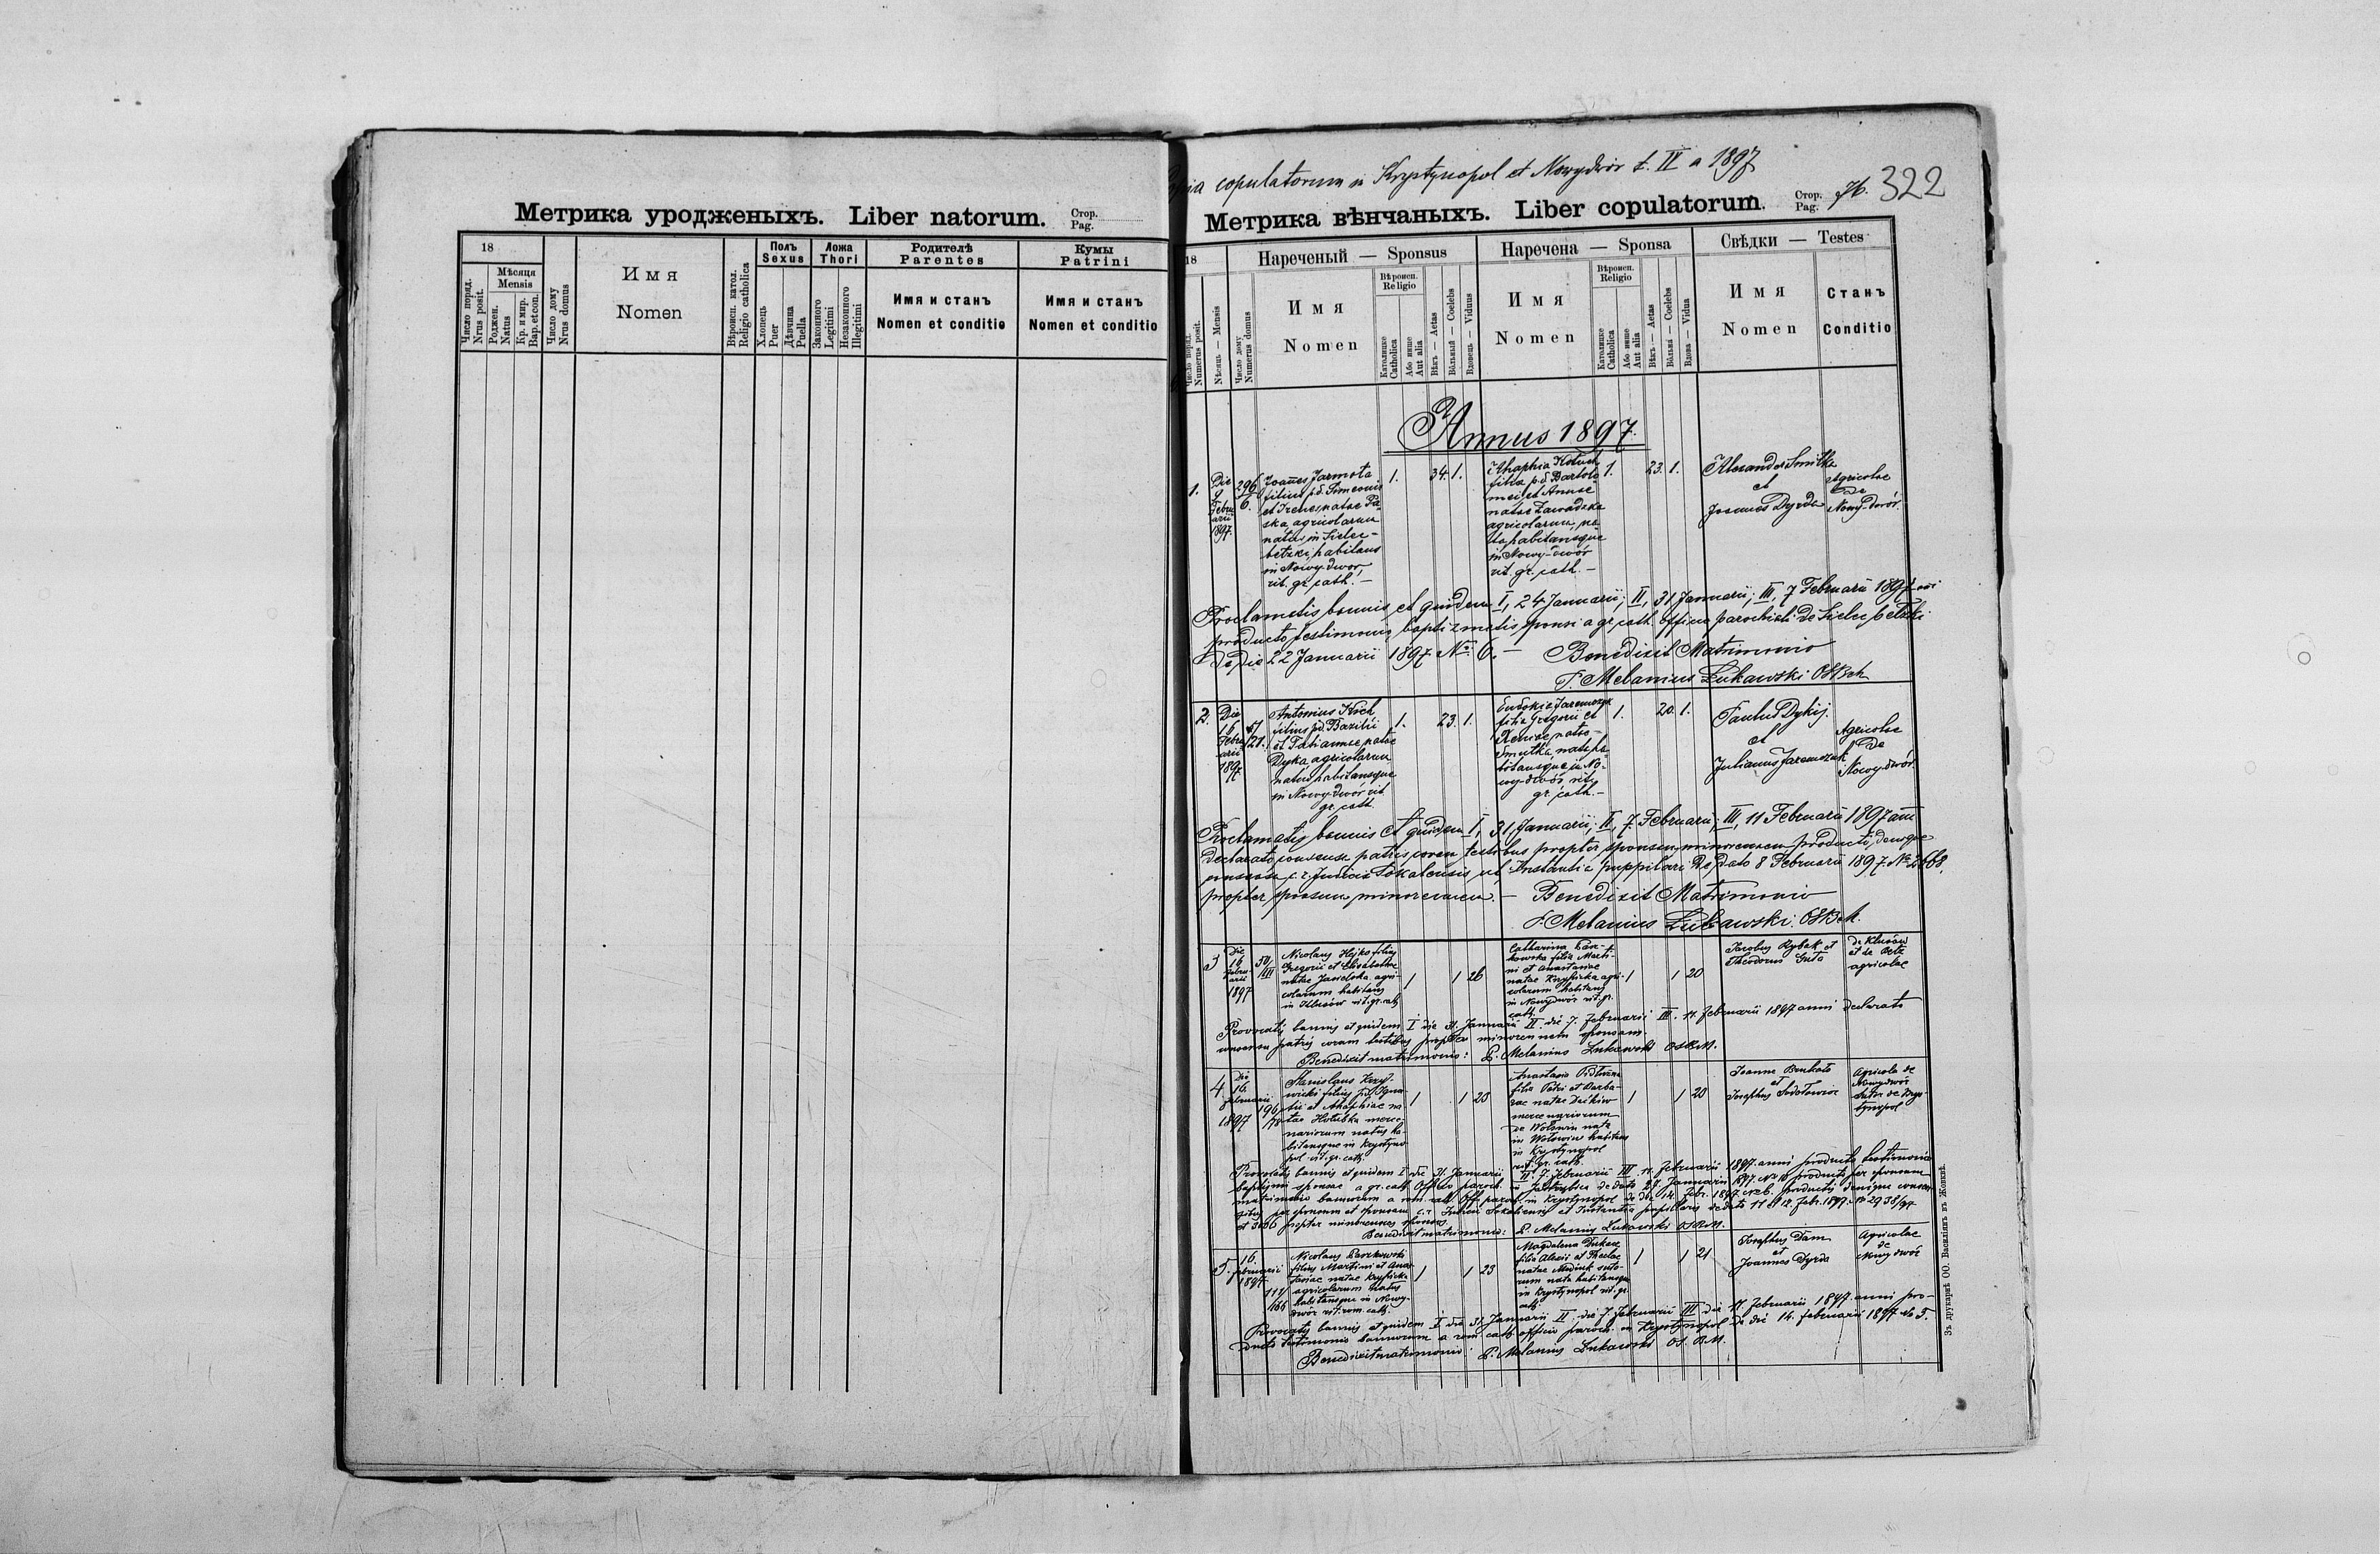 Метрика уродженыхъ. Liber natorum. Стор. Pag.
18
Число поряд. Nrus posit.
Мѣсяця Mensis
Роджен. Natus
Кр. и мир. Bap. et con.
Число дому Nrus domus
Имя
Nomen
Вѣроисп. катол. Religio catholica
Полъ Sexus
Хлопець Puer
Дѣвчина Puella
Ложа Thori
Законного Legitimi
Незаконного Illegitimi
Родителѣ Parentes
Имя и станъ
Nomen et conditio
Кумы Patrini
Имя и станъ
Nomen et conditio
copulatorum in Krystynopol et Nowydwór t. II a 1897
Метрика вѣнчаныхъ. Liber copulatorum. Стор. Pag. 76. 322
18
Число поряд. Numerus posit.
Мѣсяць — Mensis
Число дому Numerus domus
Нареченый — Sponsus
Имя
Nomen
Вѣроисп. Religio
Католицке Catholica
Або инше Aut alia
Вѣкъ — Aetas
Вôльный — Coelebs
Вдовець — Viduus
Наречена — Sponsa
Имя
Nomen
Вѣроисп. Religio
Католицке Catholica
Або инше Aut alia
Вѣкъ — Aetas
Вôльна — Coelebs
Вдова — Vidua
Свѣдки — Testes
Имя
Nomen
Станъ
Conditio
Annus 1897.
1.
Die
9
Febru
arii
1897.
296
6.
Joannes Jarmota
filius p.d. Simeonis
et Irenes natae Pa-
ska, agricolarum
natus in Sielec-
betzki, habitans
in Nowy-dwor,
rit. gr. cath. —
1.
34. 1.
Ahaphia Hotuch
filia p.d. Bartolo
mei et Annae
natae Zawadzka
agricolarum, na
ta habitansque
in Nowy-dwór
rit. gr. cath. —
1.
23. 1.
Alexander Smitka
et
Joannes Dyrda
Agricolae
de
Nowy-dwór.
Proclamatis bannis, et quidem I, 24 Januarii; II, 31 Januarii; III, 7 Februarii 1897
producto testimonio baptizmatis sponsi a gr. cath. officio parochiali de Sielec betzki
de die 22 Januarii 1897. No. 6. — Benedixit Matrimonio
P. Melanius Łukawski OSBM
2.
Die
16
Febru
arii
1897
21.
Antonius Hrch
filius p.d. Bazilii
et Tatiannae natae
Dyka, agricolarum
natus habitansque
in Nowy-dwór rit.
gr. cath.
1.
23. 1.
Eudokia Jaremczuk
filia Gregorii et
Xeniae natae
Smutka, nata ha
bitansque in No-
wy-dwór, rit.
gr. cath. —
1.
20. 1.
Paulus Dykij.
et
Julianus Jaremczuk
Agricolae
de
Nowy-dwór.
Proclamatis bannis et quidem I, 31 Januarii; II, 7. Februarii; III, 11 Februarii 1897
declarato consensu patris coram testibus propter sponsam minorennem producto, denique
c.r. Judicii Sokalensis ut Instantia puppilari de dato 8 Februarii 1897. No
propter sponsum minorennem. — Benedixit Matrimonio
P. Melanius Łukawski. OSBM.
3
Die
16
Febru-
arii
1897
50
III
Nicolaus Hejko filius
Gregorii et Elisabethae
natae Jasielska agri-
colarum habitans
in Klusów rit. gr. cath.
1
1 26
Catharina Parz-
kowska filia Marti-
ni et Anastasiae
natae Kryficka agri-
colarum habitans
in Nowydwór rit. gr.
cath.
1
1 20
Jacobus Rybak et
Theodorus Guta
de Klusów
et de Betz
agricolae
Provocatis bannis et quidem I die 31. Januarii II. die 7. Februarii III. 11. februarii 1897 anni declarato
consensu patris coram testibus propter minorennem sponsam.
Benedixit matrimonio: P. Melanius Lukawski OSBM.
4.
Die
16.
februarii
1897
196
178
Stanislaus Krzy-
wicki filius p.d. Igna
tii et Ahaphiae na
tae Holubka merce-
nariorum natus ha-
bitansque in Krystyno
pol rit. gr. cath.
1
1 28
Anastasia
filia Petri et Barba-
rae natae Dzikiw
mercenariorum
de Wolswin nata
in Wolswin habitans
in Krystynopol
rit. gr. cath.
1
1 20
et
Josephus Fedotowicz
Agricola de
Nowydwór
sutor de Krys-
tynopol
Provocatis bannis et quidem I die 31. Januarii II. 7. Februarii III 11. Februarii 1897. anni producto testimonio
baptismi sponsae a gr. cath. Officio paroch. in de dato 27. Januarii 1897. No 10 producto per sponsum
matrimonio bannorum a rom. cath. Off. paroch. in Krystynopol de die 14. Febr. 1897. No 6. productis denique consen
sibus per sponsum et sponsam c.r. Judicii Sokalensis ut Instantia pupillaris de dato 11 et 12. Febr. 1897. No 2938/97
et 3166 propter minorennes sponsos.
Benedixit matrimonio: P. Melanius Lukawski OSBM.
5.
16.
februarii
1897
117
166
Nicolaus Parzkowski
filius Martini et Anas
tasiae natae Kryficka
agricolarum natus
habitansque in Nowy-
dwór rit. rom. cath.
1
1 23
Magdalena
filia Alexii et Theclae
natae Mediuk suto-
rum nata habitansque
in Krystynopol rit. gr.
cath.
1
1 21
Josephus Dam
et
Joannes Dyrda
Agricolae
de
Nowydwór
Provocatis bannis et quidem I die 31. Januarii II die 7. Februarii III die 11 februarii 1897. anni pro-
ducto testimonio bannorum a rom. cath. officio paroch. in Krystynopol de die 14. februarii 1897 No 5.
Benedixit matrimonio: P. Melanius Lukawski OSBM.
Зъ друкарнѣ ОО. Василіянъ въ Жовквѣ.